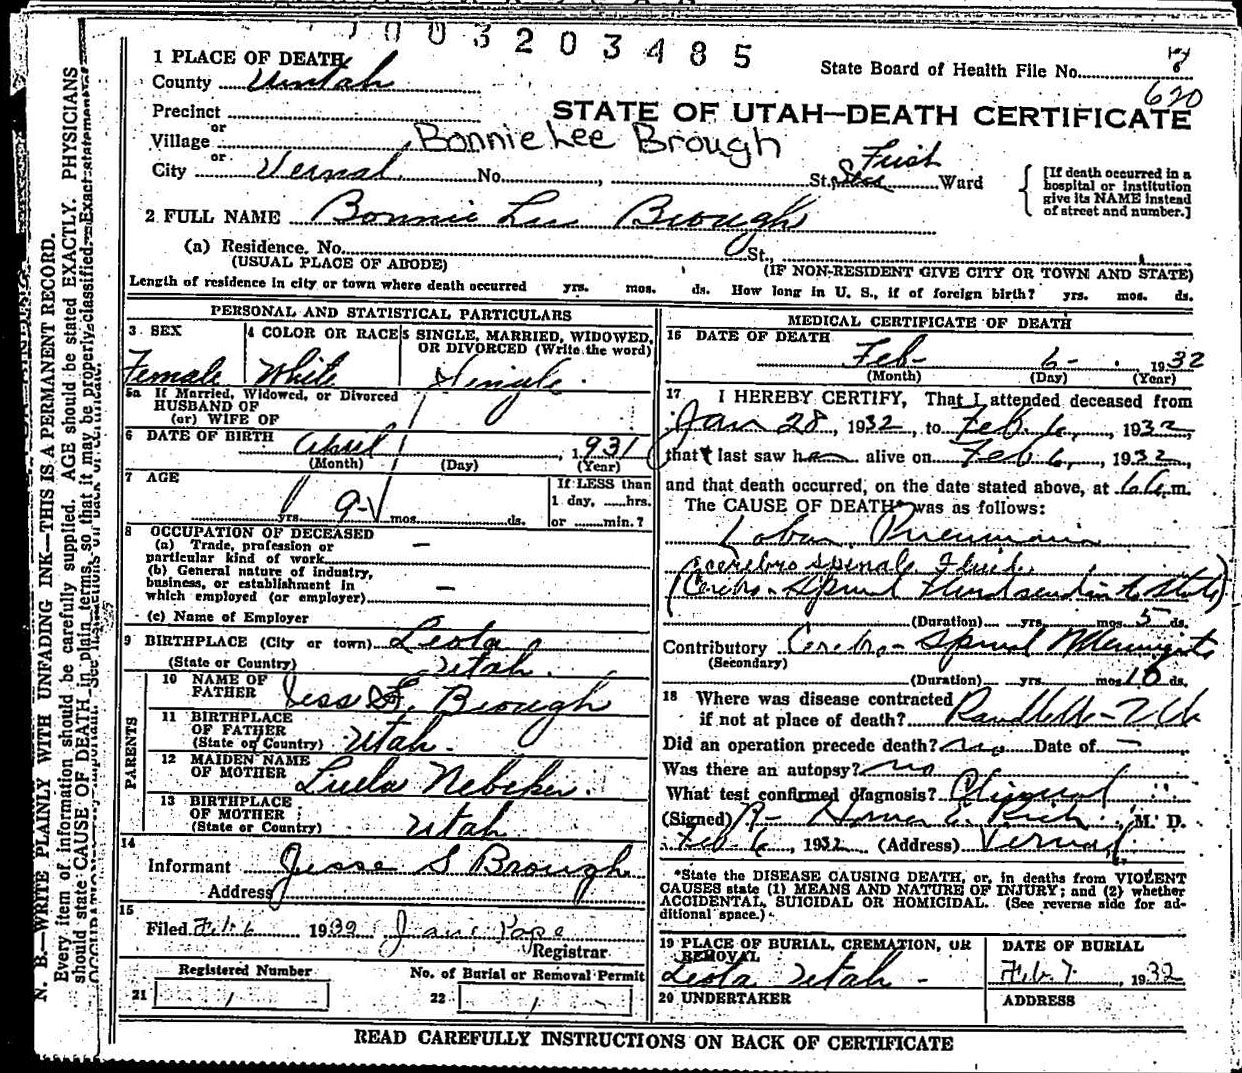 1003203485
1 PLACE OF DEATH
State Board of Health File No. 620
County Uintah
STATE OF UTAH—DEATH CERTIFICATE
Precinct
or
Village
Bonnie Lee Brough
or
City Vernal No. St., First Ward
[If death occurred in a hospital or institution give its NAME instead of street and number.]
2 FULL NAME Bonnie Lee Brough
(a) Residence. No. St.,
(USUAL PLACE OF ABODE) (IF NON-RESIDENT GIVE CITY OR TOWN AND STATE)
Length of residence in city or town where death occurred yrs. mos. ds. How long in U. S., if of foreign birth? yrs. mos. ds.
PERSONAL AND STATISTICAL PARTICULARS
3 SEX 4 COLOR OR RACE 5 SINGLE, MARRIED, WIDOWED, OR DIVORCED (Write the word)
Female White Single
5a If Married, Widowed, or Divorced
HUSBAND OF
(or) WIFE OF
6 DATE OF BIRTH
April , 1931
(Month) (Day) (Year)
7 AGE
If LESS than
1 day, ......hrs.
or ......min.?
9 yrs. mos. ds.
8 OCCUPATION OF DECEASED
(a) Trade, profession or
particular kind of work —
(b) General nature of industry,
business, or establishment in
which employed (or employer) —
(c) Name of Employer
9 BIRTHPLACE (City or town) Leota
(State or Country) Utah.
PARENTS
10 NAME OF
FATHER Jess S. Brough
11 BIRTHPLACE
OF FATHER
(State or Country) Utah.
12 MAIDEN NAME
OF MOTHER Luella Nebeker.
13 BIRTHPLACE
OF MOTHER
(State or Country) Utah
14
Informant Jesse S Brough
Address
15
Filed Feb 6 1932 Jane Pope
Registrar
Registered Number No. of Burial or Removal Permit
21 1 22 1
MEDICAL CERTIFICATE OF DEATH
16 DATE OF DEATH
Feb- 6- 1932
(Month) (Day) (Year)
17 I HEREBY CERTIFY, That I attended deceased from
Jan 28, 1932, to Feb. 6, 1932,
that I last saw her alive on Feb 6, 1932,
and that death occurred, on the date stated above, at m.
The CAUSE OF DEATH* was as follows:
Lobar Pneumonia
cerebro spinal Fluid
(Cerebro-Spinal Fluid send in to state)
(Duration) yrs. mos 5 ds.
Contributory Cerebro-Spinal Meningitis
(Secondary)
(Duration) yrs. mos 10 ds.
18 Where was disease contracted
if not at place of death? Randlett-Utah
Did an operation precede death? no Date of —
Was there an autopsy? no
What test confirmed diagnosis? Clinical
(Signed) R- Homer E. Rich, M. D.
Feb 6, 1932 (Address) Vernal
*State the DISEASE CAUSING DEATH, or, in deaths from VIOLENT
CAUSES state (1) MEANS AND NATURE OF INJURY; and (2) whether
ACCIDENTAL, SUICIDAL OR HOMICIDAL. (See reverse side for ad-
ditional space.)
19 PLACE OF BURIAL, CREMATION, OR REMOVAL
Leota Utah -
DATE OF BURIAL
Feb. 7, 1932
20 UNDERTAKER ADDRESS
READ CAREFULLY INSTRUCTIONS ON BACK OF CERTIFICATE
N. B.—WRITE PLAINLY WITH UNFADING INK—THIS IS A PERMANENT RECORD.
Every item of information should be carefully supplied. AGE should be stated EXACTLY. PHYSICIANS
should state CAUSE OF DEATH in plain terms, so that it may be properly classified. Exact statement